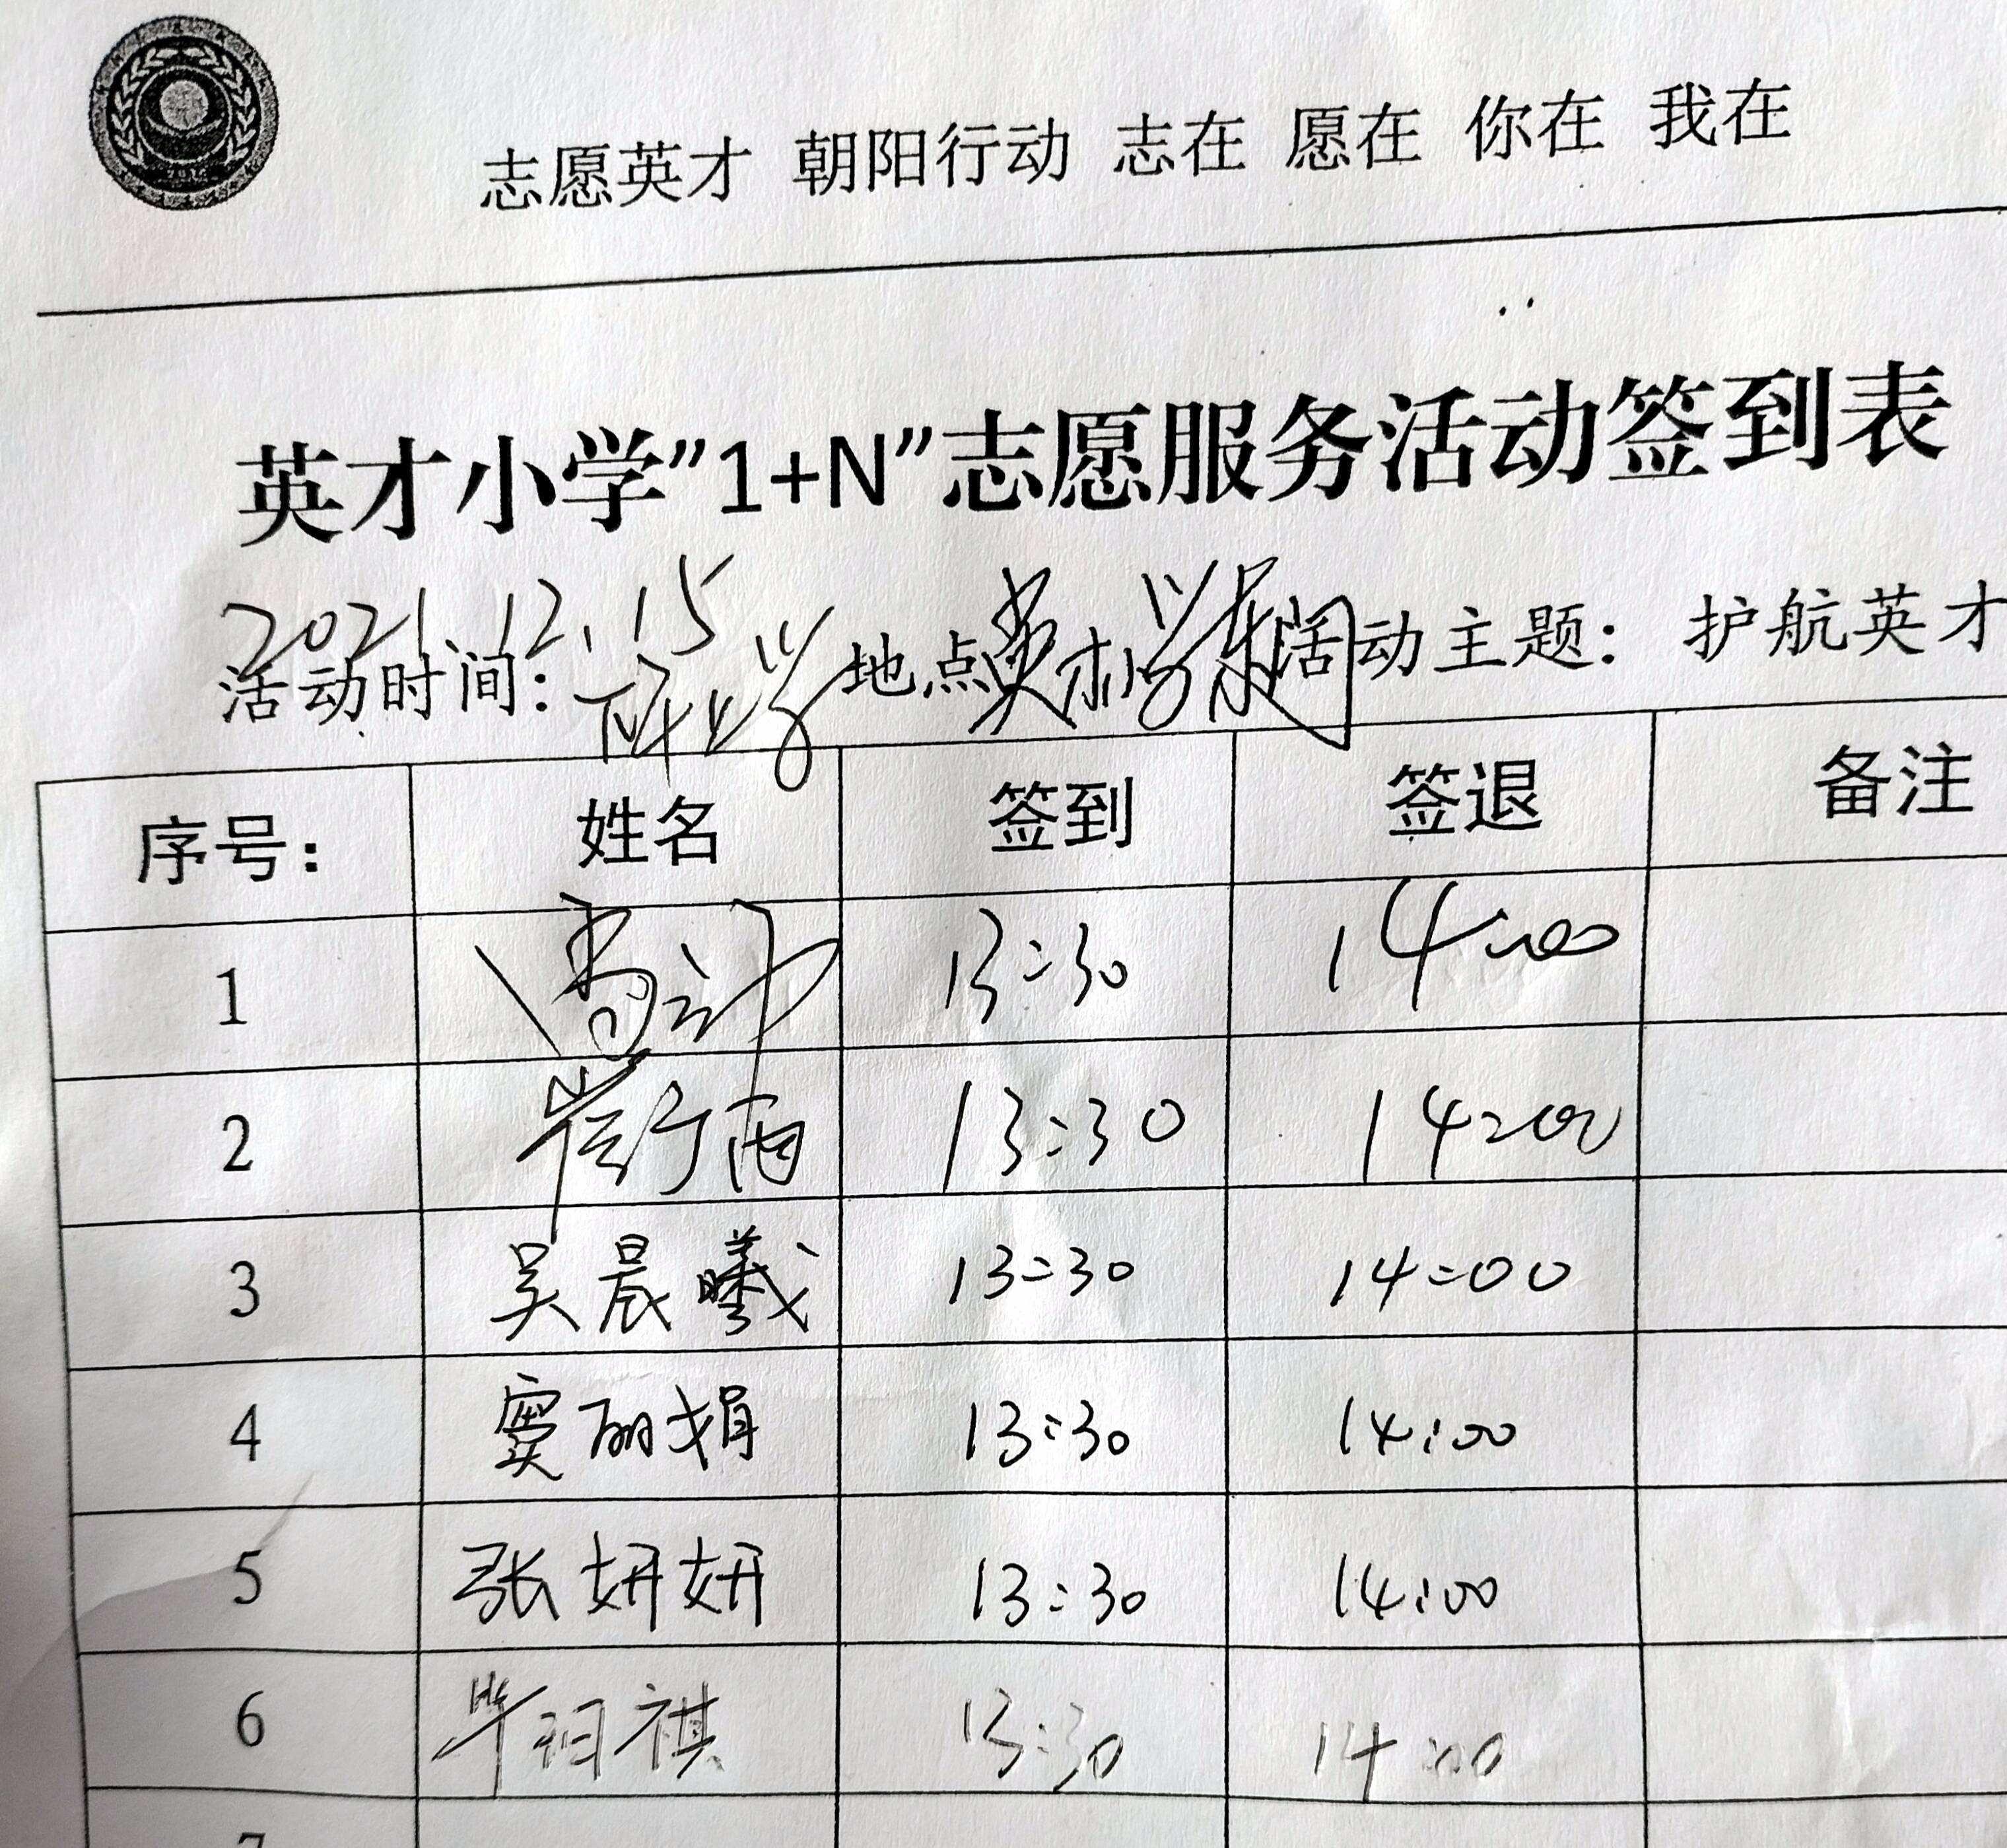 志愿英才 朝阳行动 志在 愿在 你在 我在
英才小学”1+N”志愿服务活动签到表
2021.12.15
活动时间: 下午 放学 地点 英才小学东门 活动主题: 护航英才
序号: 姓名 签到 签退 备注
1 13:30 14:00
2 13:30 14:00
3 吴晨曦 13:30 14:00
4 窦丽娟 13:30 14:00
5 张妍妍 13:30 14:00
6 13:30 14:00
7